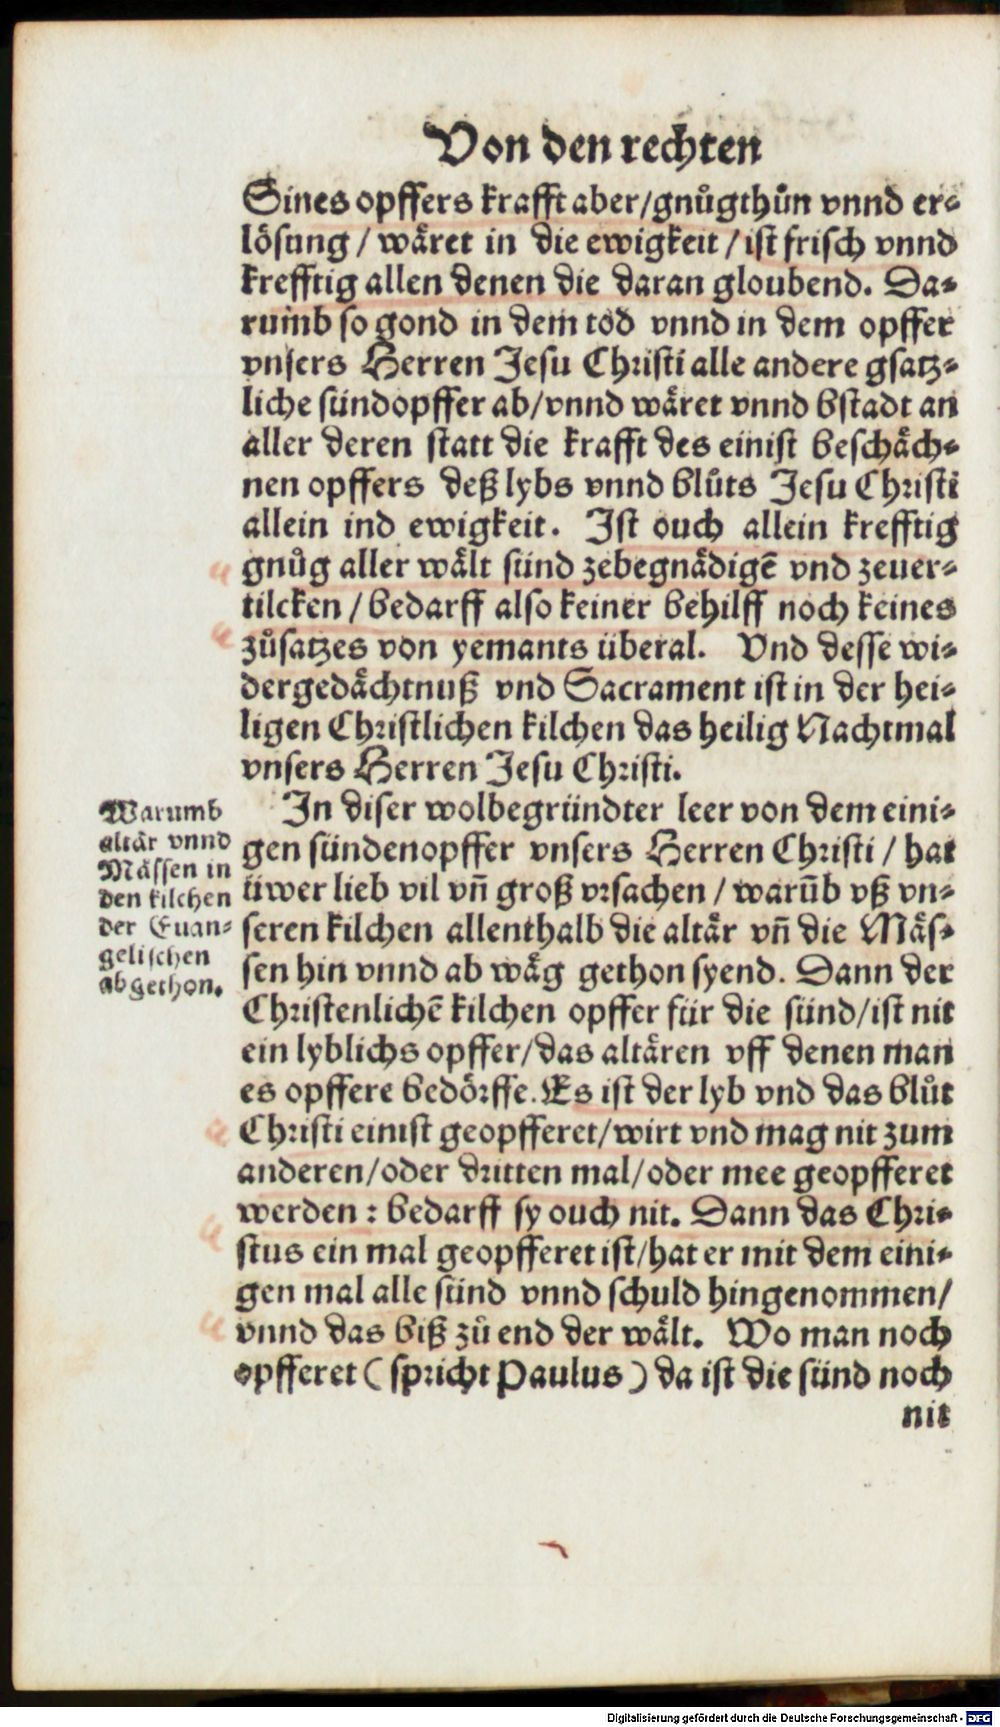 Von den rechten
Sines opffers krafft aber/gnuͦgthuͦn vnnd er⸗
loͤsung / waͤret in die ewigkeit / ist frisch vnnd
krefftig allen denen die daran gloubend. Da⸗
rumb so gond in dem tod vnnd in dem opffer
vnsers Herren Jesu Christi alle andere gsatz⸗
liche sündopffer ab/vnnd waͤret vnnd bstadt an
aller deren statt die krafft des einist beschaͤch⸗
nen opffers deß lybs vnnd bluͦts Jesu Christi
allein ind ewigkeit. Ist ouch allein krefftig
gnuͦg aller waͤlt sünd zebegnaͤdigē vnd zeuer⸗
tilcken / bedarff also keiner behilff noch keines
zuͦsatzes von yemants überal. Vnd desse wi⸗
dergedaͤchtnuß vnd Sacrament ist in der hei⸗
ligen Christlichen kilchen das heilig Nachtmal
vnsers Herren Jesu Christi.
Warumb
altaͤr vnnd
Maͤssen in
den kilchen
der Euan⸗
gelischen
abgethon.
In diser wolbegründter leer von dem eini⸗
gen sündenopffer vnsers Herren Christi / hat
üwer lieb vil vn̄ groß vrsachen / warūb vß vn⸗
seren kilchen allenthalb die altaͤr vn̄ die Maͤs⸗
sen hin vnnd ab waͤg gethon syend. Dann der
Christenlichē kilchen opffer für die sünd/ist nit
ein lyblichs opffer/das altaͤren vff denen man
es opffere bedoͤrffe. Es ist der lyb vnd das bluͦt
Christi einist geopfferet/wirt vnd mag nit zum
anderen/oder dritten mal/oder mee geopfferet
werden : bedarff sy ouch nit. Dann das Chri⸗
stus ein mal geopfferet ist/hat er mit dem eini⸗
gen mal alle sünd vnnd schuld hingenommen/
vnnd das biß zuͦ end der waͤlt. Wo man noch
opfferet ( spricht Paulus ) da ist die sünd noch
nit
Digitalisierung gefördert durch die Deutsche Forschungsgemeinschaft - DFG